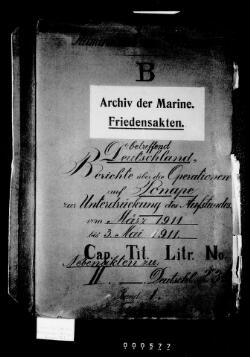 B
Archiv der Marine.
Friedensakten.
betreffend
Deutschland.
Berichte über die Operationen
auf Ponape
zur Unterdrückung des Aufstandes
vom März 1911
bis 3. Mai 1911.
Cap. Tit. Litr. No.
Nebenakten zu
II. Deutschl.
Band 1.
000577